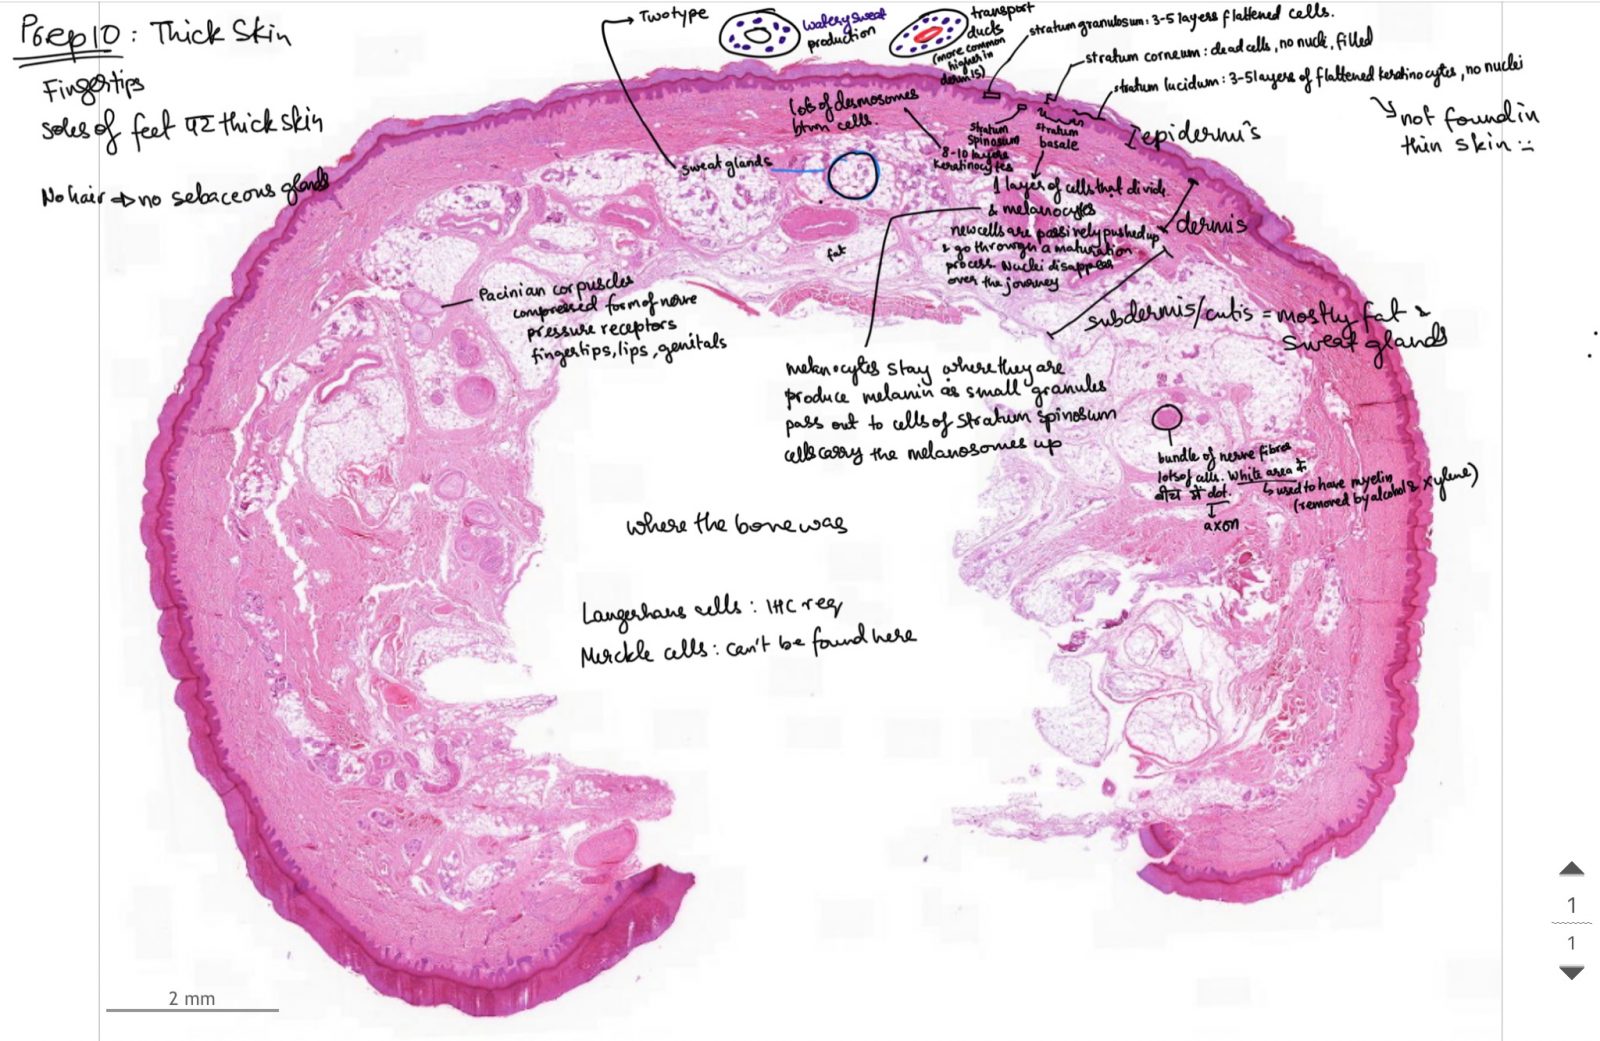 Prep 10 : Thick Skin
Fingertips
soles of feet thick skin
No hair → no sebaceous glands
Two type
watery sweat
production
transport
ducts
(more common
higher in
dermis)
stratum granulosum: 3-5 layers flattened cells.
stratum corneum: dead cells, no nuclei, filled
stratum lucidum: 3-5 layers of flattened keratinocytes, no nuclei
↳ not found in
thin skin
epidermis
lots of desmosomes
btwn cells.
sweat glands
stratum
spinosum
8-10 layers
keratinocytes
stratum
basale
1 layer of cells that divide
& melanocytes
new cells are passively pushed up
& go through a maturation
process. Nuclei disappear
over the journey
dermis
fat
Pacinian corpuscles
compressed form of nerve
pressure receptors
fingertips, lips, genitals
subdermis/cutis = mostly fat &
sweat glands
melanocytes stay where they are
produce melanin as small granules
pass out to cells of stratum spinosum
cells carry the melanosomes up
bundle of nerve fibres
lots of cells. White area
dot.
↳ used to have myelin
(removed by alcohol & xylene)
↓
axon
where the bone was
Langerhans cells : IHC req
Merckle cells : can't be found here
2 mm
1
1